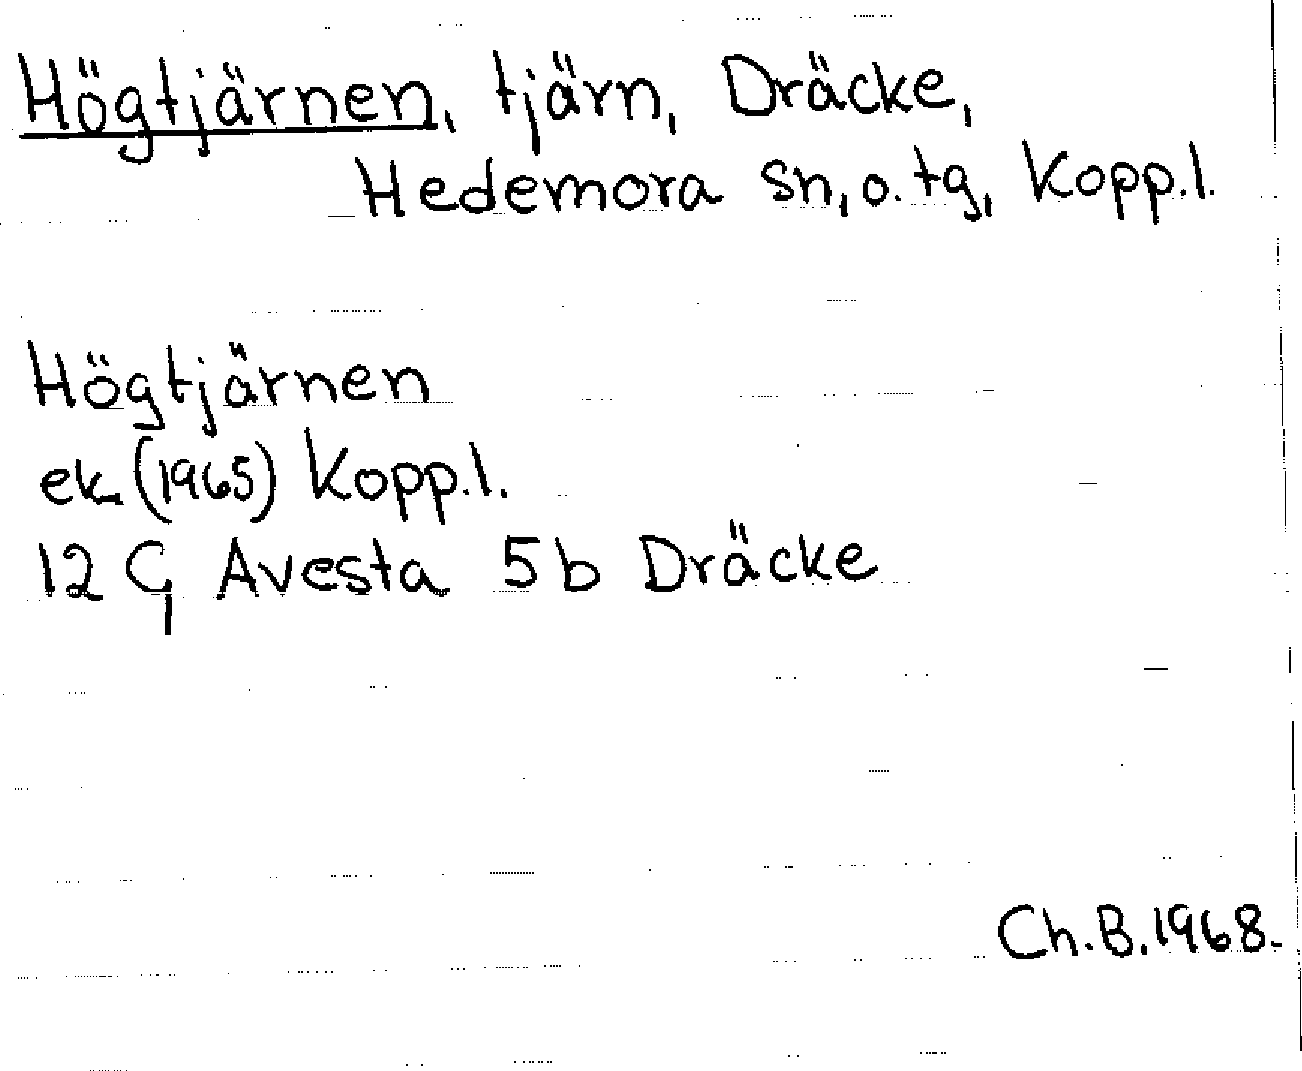 Högtjärnen, tjärn, Dräcke,
Hedemora sn, o. tg, Kopp.l.
Högtjärnen
ek (1965) Kopp.l.
12 G Avesta 5 b Dräcke
Ch.B.1968.